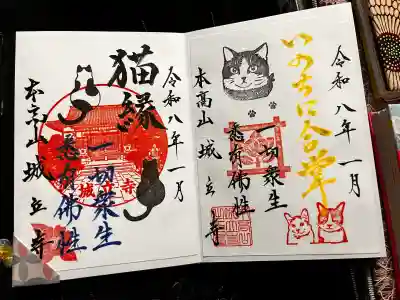 いのちに合掌
令和八年一月
一切衆生
悉有佛性
本高山 城立寺
令和八年一月
猫縁
一切衆生
悉有佛性
本高山 城立寺